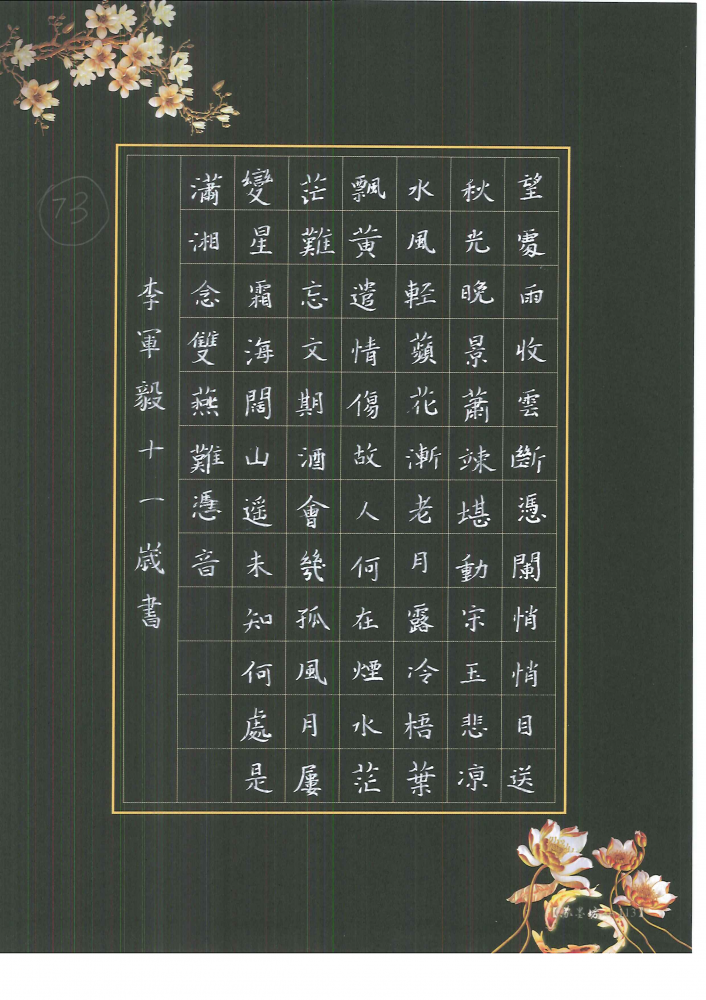 望處雨收雲斷憑闌悄悄目送
秋光晚景蕭竦堪動宋玉悲凉
水風輕蘋花漸老月露冷梧葉
飄黃遣情傷故人何在煙水茫
茫難忘文期酒會幾孤風月屢
變星霜海闊山遥未知何處是
瀟湘念雙燕難憑音
李軍毅十一歲書
73